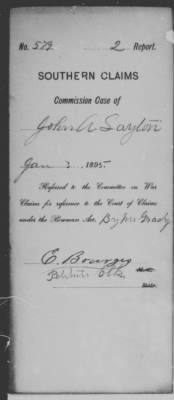 No. 579. 2 Report.
SOUTHERN CLAIMS
Commission Case of
John A Layton
Jan 3 1895
Referred to the Committee on War
Claims for reference to the Court of Claims
under the Bowman Act. By Mr Grady
E. Bourgy
Atty